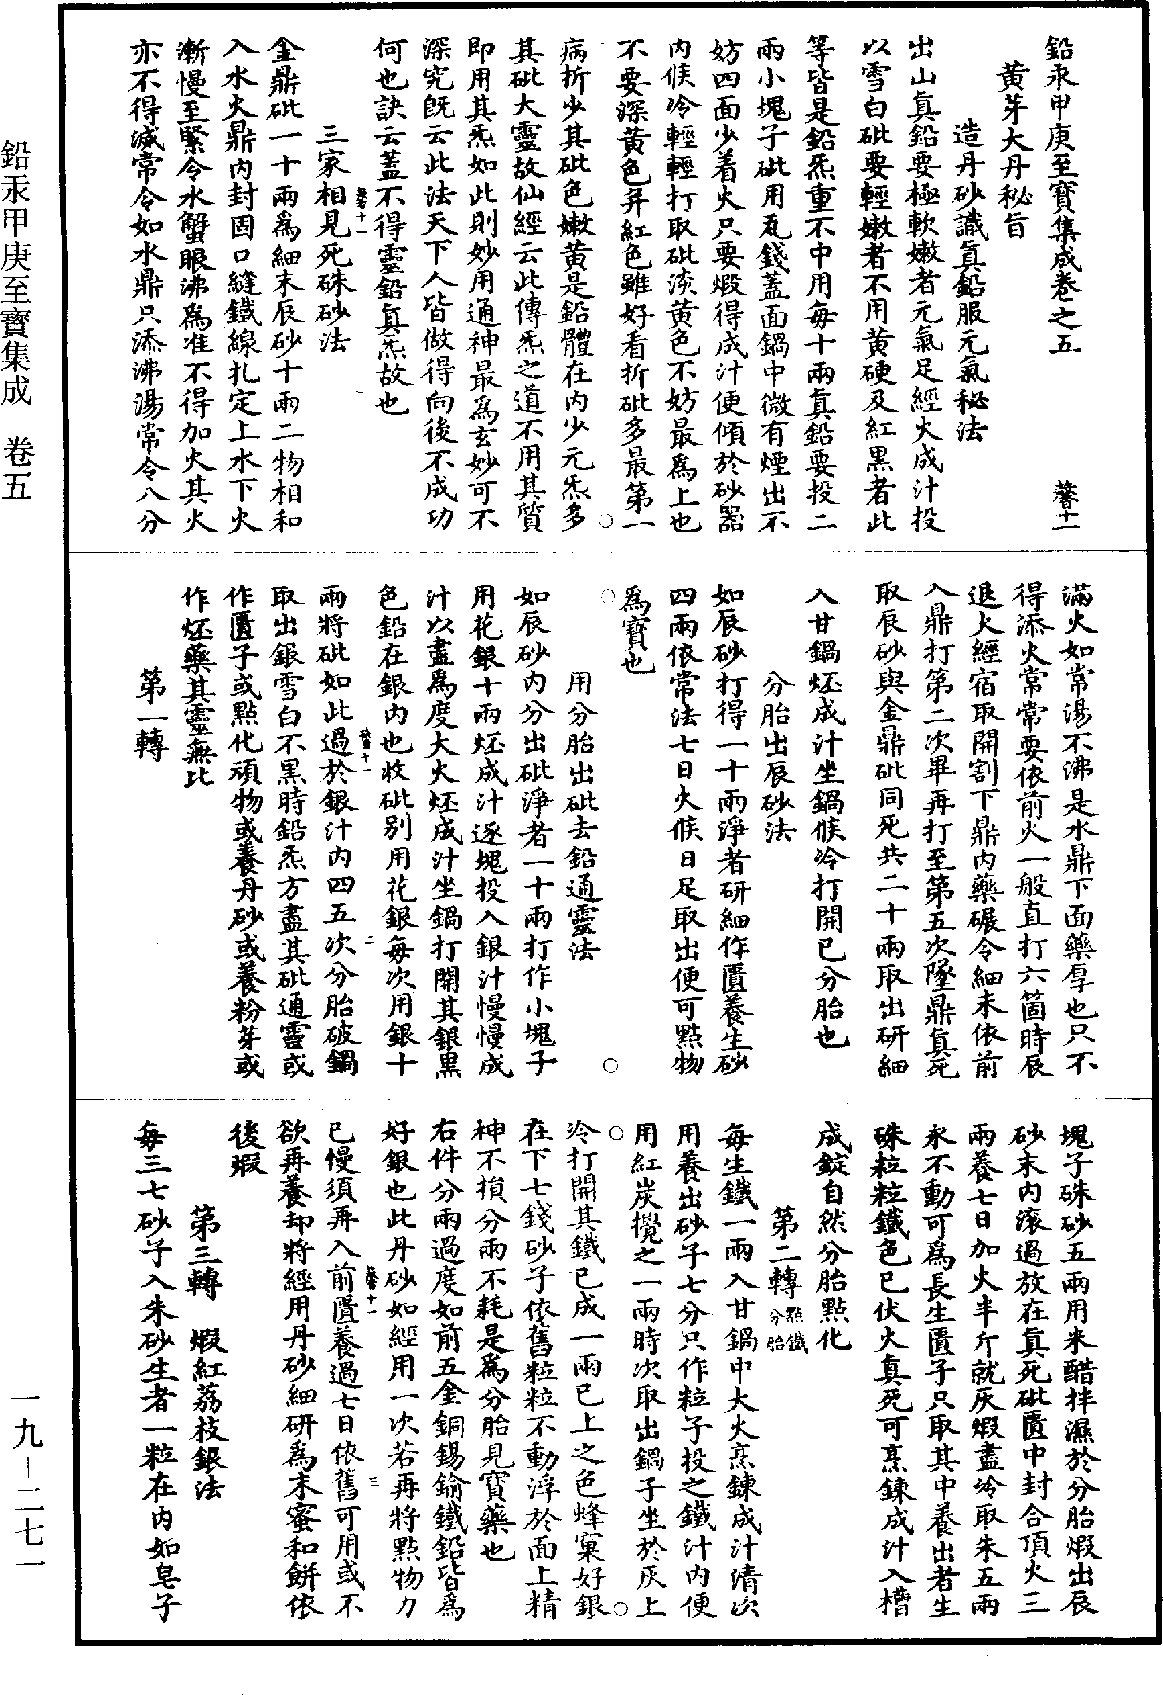 鉛汞甲庚至寶集成卷之五
黃芽大丹秘旨
造丹砂識真鉛服元氣秘法
出山真鉛要極軟嫩者元氣足經火成汁投
以雪白砒要輕嫩者不用黃硬及紅黑者此
等皆是鉛炁重不中用每十兩真鉛要投二
兩小塊子砒用瓦錢蓋面鍋中微有煙出不
妨四面少着火只要煅得成汁便傾於砂器
內候冷輕輕打取砒淡黃色不妨最為上也
不要深黃色并紅色雖好看折砒多最第一
病折少其砒色嫩黃是鉛體在內少元炁多
其砒大靈故仙經云此傳炁之道不用其質
即用其炁如此則妙用通神最為玄妙可不
深究既云此法天下人皆做得向後不成功
何也訣云蓋不得靈鉛真炁故也
三家相見死硃砂法
金鼎砒一十兩為細末辰砂十兩二物相和
入水火鼎內封固口縫鐵線扎定上水下火
漸慢至緊令水蟹眼沸為准不得加火其火
亦不得減常令如水鼎只添沸湯常令八分
滿火如常湯不沸是水鼎下面藥厚也只不
得添火常常要依前火一般直打六箇時辰
退火經宿取開割下鼎內藥碾令細末依前
入鼎打第二次畢再打至第五次墜鼎真死
取辰砂與金鼎砒同死共二十兩取出研細
入甘鍋烶成汁坐鍋候冷打開已分胎也
分胎出辰砂法
如辰砂打得一十兩淨者研細作匱養生砂
四兩依常法七日火候日足取出便可點物
為寶也
用分胎出砒去鉛通靈法
如辰砂內分出砒淨者一十兩打作小塊子
用花銀十兩烶成汁逐塊投入銀汁慢慢成
汁以盡為度大火烶成汁坐鍋打開其銀黑
色鉛在銀內也收砒別用花銀每次用銀十
兩將砒如此過於銀汁內四五次分胎破鍋
取出銀雪白不黑時鉛炁方盡其砒通靈或
作匱子或點化頑物或養丹砂或養粉芽或
作烶藥其靈無比
第一轉
塊子硃砂五兩用米醋拌濕於分胎煅出辰
砂末內滾過放在真死砒匱中封合頂火三
兩養七日加火半斤就灰煅盡冷取朱五兩
永不動可為長生匱子只取其中養出者生
硃粒粒鐵色已伏火真死可烹鍊成汁入槽
成錠自然分胎點化
第二轉 點鐵分胎
每生鐵一兩入甘鍋中大火烹鍊成汁清次
用養出砂子七分只作粒子投之鐵汁內便
用紅炭攪之一兩時次取出鍋子坐於灰上
冷打開其鐵已成一兩已上之色蜂窠好銀
在下七錢砂子依舊粒粒不動浮於面上精
神不損分兩不耗是為分胎見寶藥也
右件分兩過度如前五金銅錫鍮鐵鉛皆為
好銀也此丹砂如經用一次若再將點物力
已慢須再入前匱養過七日依舊可用或不
欲再養却將經用丹砂細研為末蜜和餅依
後煅
第三轉 煅紅荔枝銀法
每三七砂子入朱砂生者一粒在內如皂子
鉛汞甲庚至寶集成 卷五
一九－二七一